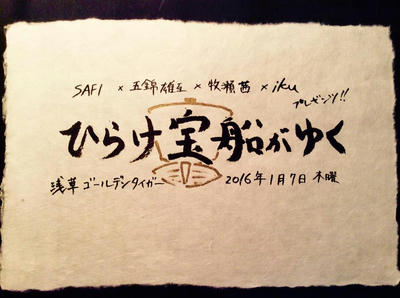 SAFI × 五錦雄互 × 牧瀬茜 × iku
プレゼンツ!!
ひらけ宝船がゆく
浅草ゴールデンタイガー 2016年1月7日 木曜